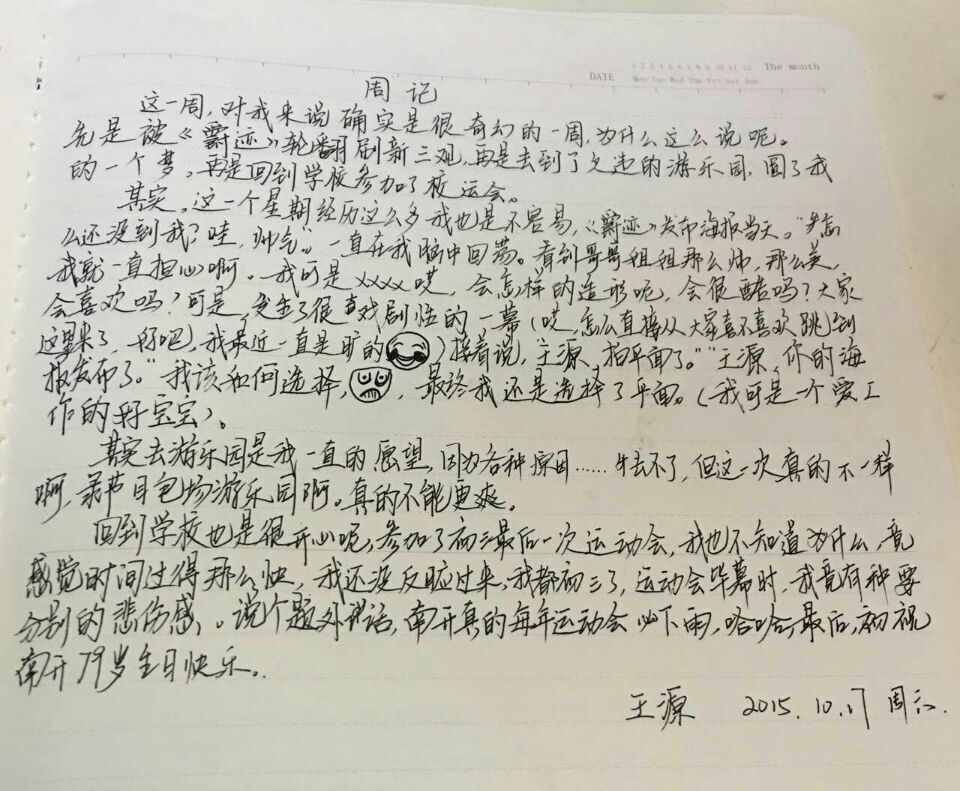 DATE 1 2 3 4 5 6 7 8 9 10 11 12 The month
Mon Tue Wed Thu Fri Sat Sun
周记
这一周,对我来说确实是很奇幻的一周,为什么这么说呢。
先是被《爵迹》轮翻刷新三观,再是去到了久违的游乐园,圆了我
的一个梦。再是回到学校参加了校运会。
其实,这一个星期经历这么多我也是不容易,《爵迹》发布海报当天。"怎
么还没到我?哇,帅气。"一直在我脑中回荡。看到哥哥姐姐那么帅,那么美,
我就一直担心啊。我可是xxxx哎,会怎样的造形呢,会很酷吗?大家
会喜欢吗?可是,发生了很喜戏剧性的一幕(哎,怎么直接从大家喜不喜欢跳到
这里来了,好吧,我最近一直是旷的)接着说,"王源,拍平面了。""王源,你的海
报发布了。"我该如何选择,最终我还是选择了平面。(我可是一个爱工
作的好宝宝)。
其实去游乐园是我一直的愿望,因为各种原因……失去不了,但这一次真的不一样
啊,录节目包场游乐园啊。真的不能更爽。
回到学校也是很开心呢,参加了初三最后一次运动会,我也不知道为什么,竟
感觉时间过得那么快,我还没反应过来,我都初三了,运动会毕幕时,我竟有种要
分别的悲伤感。说个题外话,南开真的每年运动会必下雨,哈哈,最后,祝
南开79岁生日快乐。
王源 2015.10.17 周六.